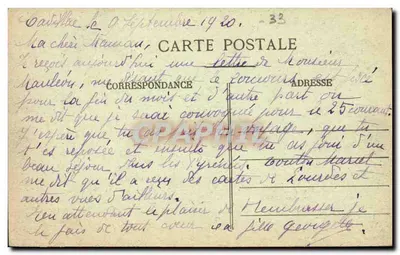 Cadillac le 9 Septembre 1920. -33
Ma chère Maman, CARTE POSTALE
Je reçois aujourd'hui une lettre de Monsieur
me disant que le concours est fixé
CORRESPONDANCE ADRESSE
pour la fin du mois et d'autre part on
me dit que je serai convoquée pour le 25 courant.
J'espère que tu as fait bon voyage, que tu
t'es reposée et ensuite que tu as joui d'un
beau séjour dans les Pyrénées. Tonton Marcel
me dit qu'il a reçu des cartes de Lourdes et
autres vues d'ailleurs.
En attendant le plaisir de t'embrasser je
le fais de tout cœur ta fille Georgette
CPAPHIL